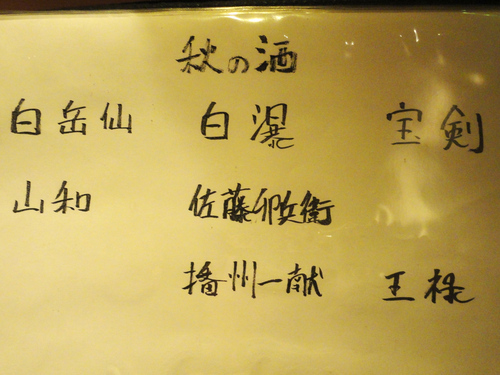 秋の酒
白岳仙 白瀑 宝剣
山和 佐藤卯兵衛
播州一献 王祿